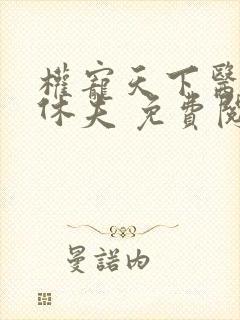 權寵天下醫
休夫 免費閱
曼諾內